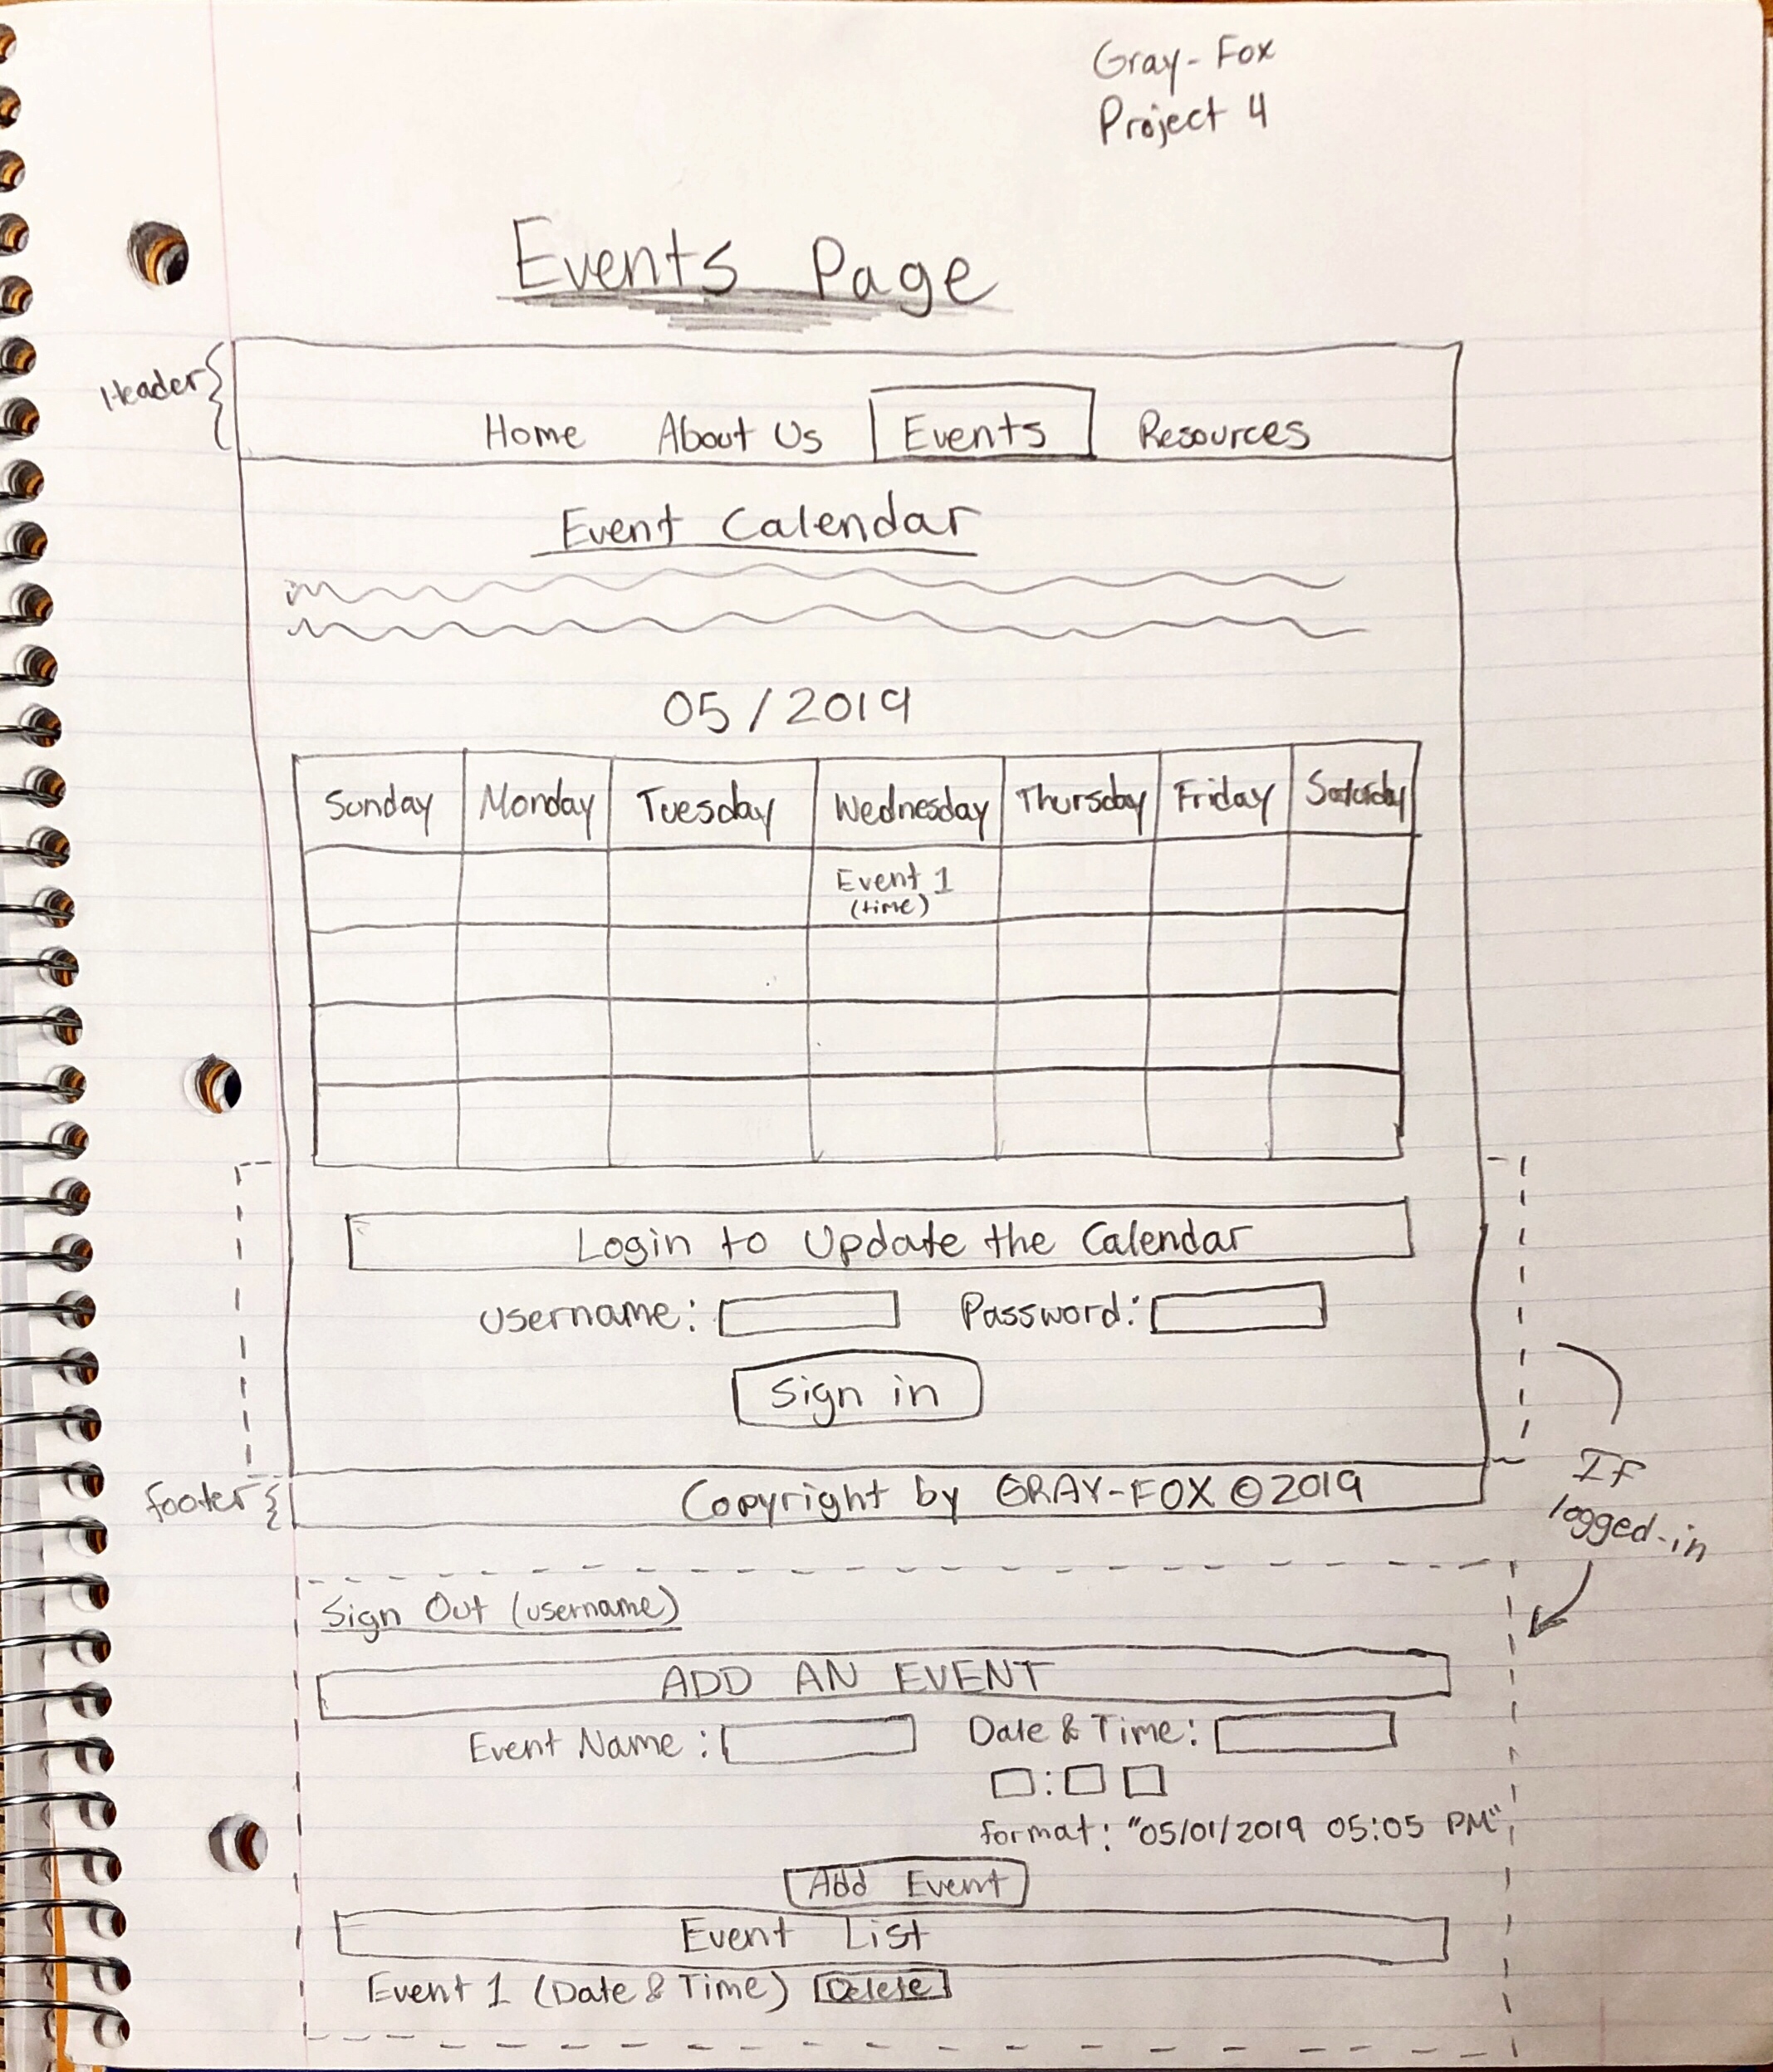 Gray-Fox
Project 4
Events Page
Header
Home About Us Events Resources
Event Calendar
05/2019
Sunday Monday Tuesday Wednesday Thursday Friday Saturday
Event 1
(time)
Login to Update the Calendar
Username: Password:
Sign in
footer
Copyright by GRAY-FOX © 2019
If
logged-in
Sign Out (username)
ADD AN EVENT
Event Name: Date & Time:
:
format: "05/01/2019 05:05 PM"
Add Event
Event List
Event 1 (Date & Time) Delete